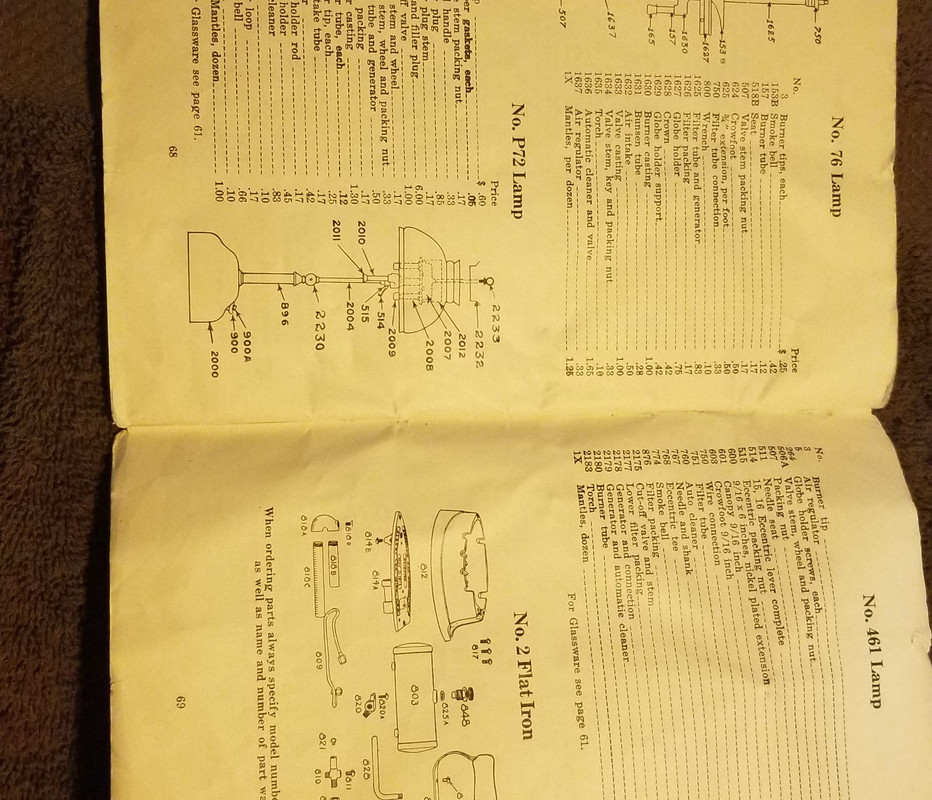 No. 76 Lamp
No.
Price
3 Burner tips, each $ .25
153B Smoke bell .42
157 Burner tube .12
518B Seat .17
507 Valve stem packing nut .17
624 Crowfoot .50
625 3/4" extension, per foot .50
750 Filter tube connection .33
800 Wrench .10
1625 Filter tube and generator .83
1626 Filter packing .17
1627 Globe holder .75
1628 Crown .42
1629 Globe holder support .42
1630 Burner casting 1.00
1631 Bunsen tube .28
1632 Air intake .50
1633 Valve casting 1.00
1634 Valve stem, key and packing nut .33
1635 Torch .10
1636 Automatic cleaner and valve 1.65
1637 Air regulator .33
1X Mantles, per dozen 1.25
750
1625
153 B
1627
1630
157
165
1637
507
No. P72 Lamp
Price
$ .60
er gaskets, each .05
stem packing nut .17
handle .33
plug .85
plug stem .17
and filler plug 6.00
ff valve 1.00
stem and wheel .17
stem, wheel and packing nut .33
tube and generator .50
packing .17
r casting 1.30
r tube, each .12
r tip, each .25
take tube .17
holder rod .42
holder .17
cleaner .45
.83
.10
.17
loop .66
bell .10
Mantles, dozen 1.00
Glassware see page 61.
2233
2232
2012
2007
2008
2009
514
515
2010
2011
2004
2230
896
900A
900
2000
68
No. 461 Lamp
No.
3 Burner tip
5 Air regulator
264 Globe holder screws, each
506A Valve stem, wheel and packing nut
507 Packing nut
511 Needle seat
514 15/16 Eccentric lever complete
515 Eccentric packing nut
600 9/16 x 6 inches, nickel plated extension
601 Canopy 9/16 inch
603 Crowfoot 9/16 inch
750 Wire connection
751 Filter tube
760 Auto cleaner
767 Needle and shank
768 Eccentric tee
774 Smoke bell
876 Filter packing
2175 Cut-off valve and stem
2177 Lower filter packing
2178 Generator and connection
2179 Generator and automatic cleaner
2180 Burner tube
2183 Torch
1X Mantles, dozen
For Glassware see page 61.
No. 2 Flat Iron
817
848
825A
812
803
814B
814A
820A
820
828
818B
818A
818C
809
821
811
810
When ordering parts always specify model numbe
as well as name and number of part wa
69